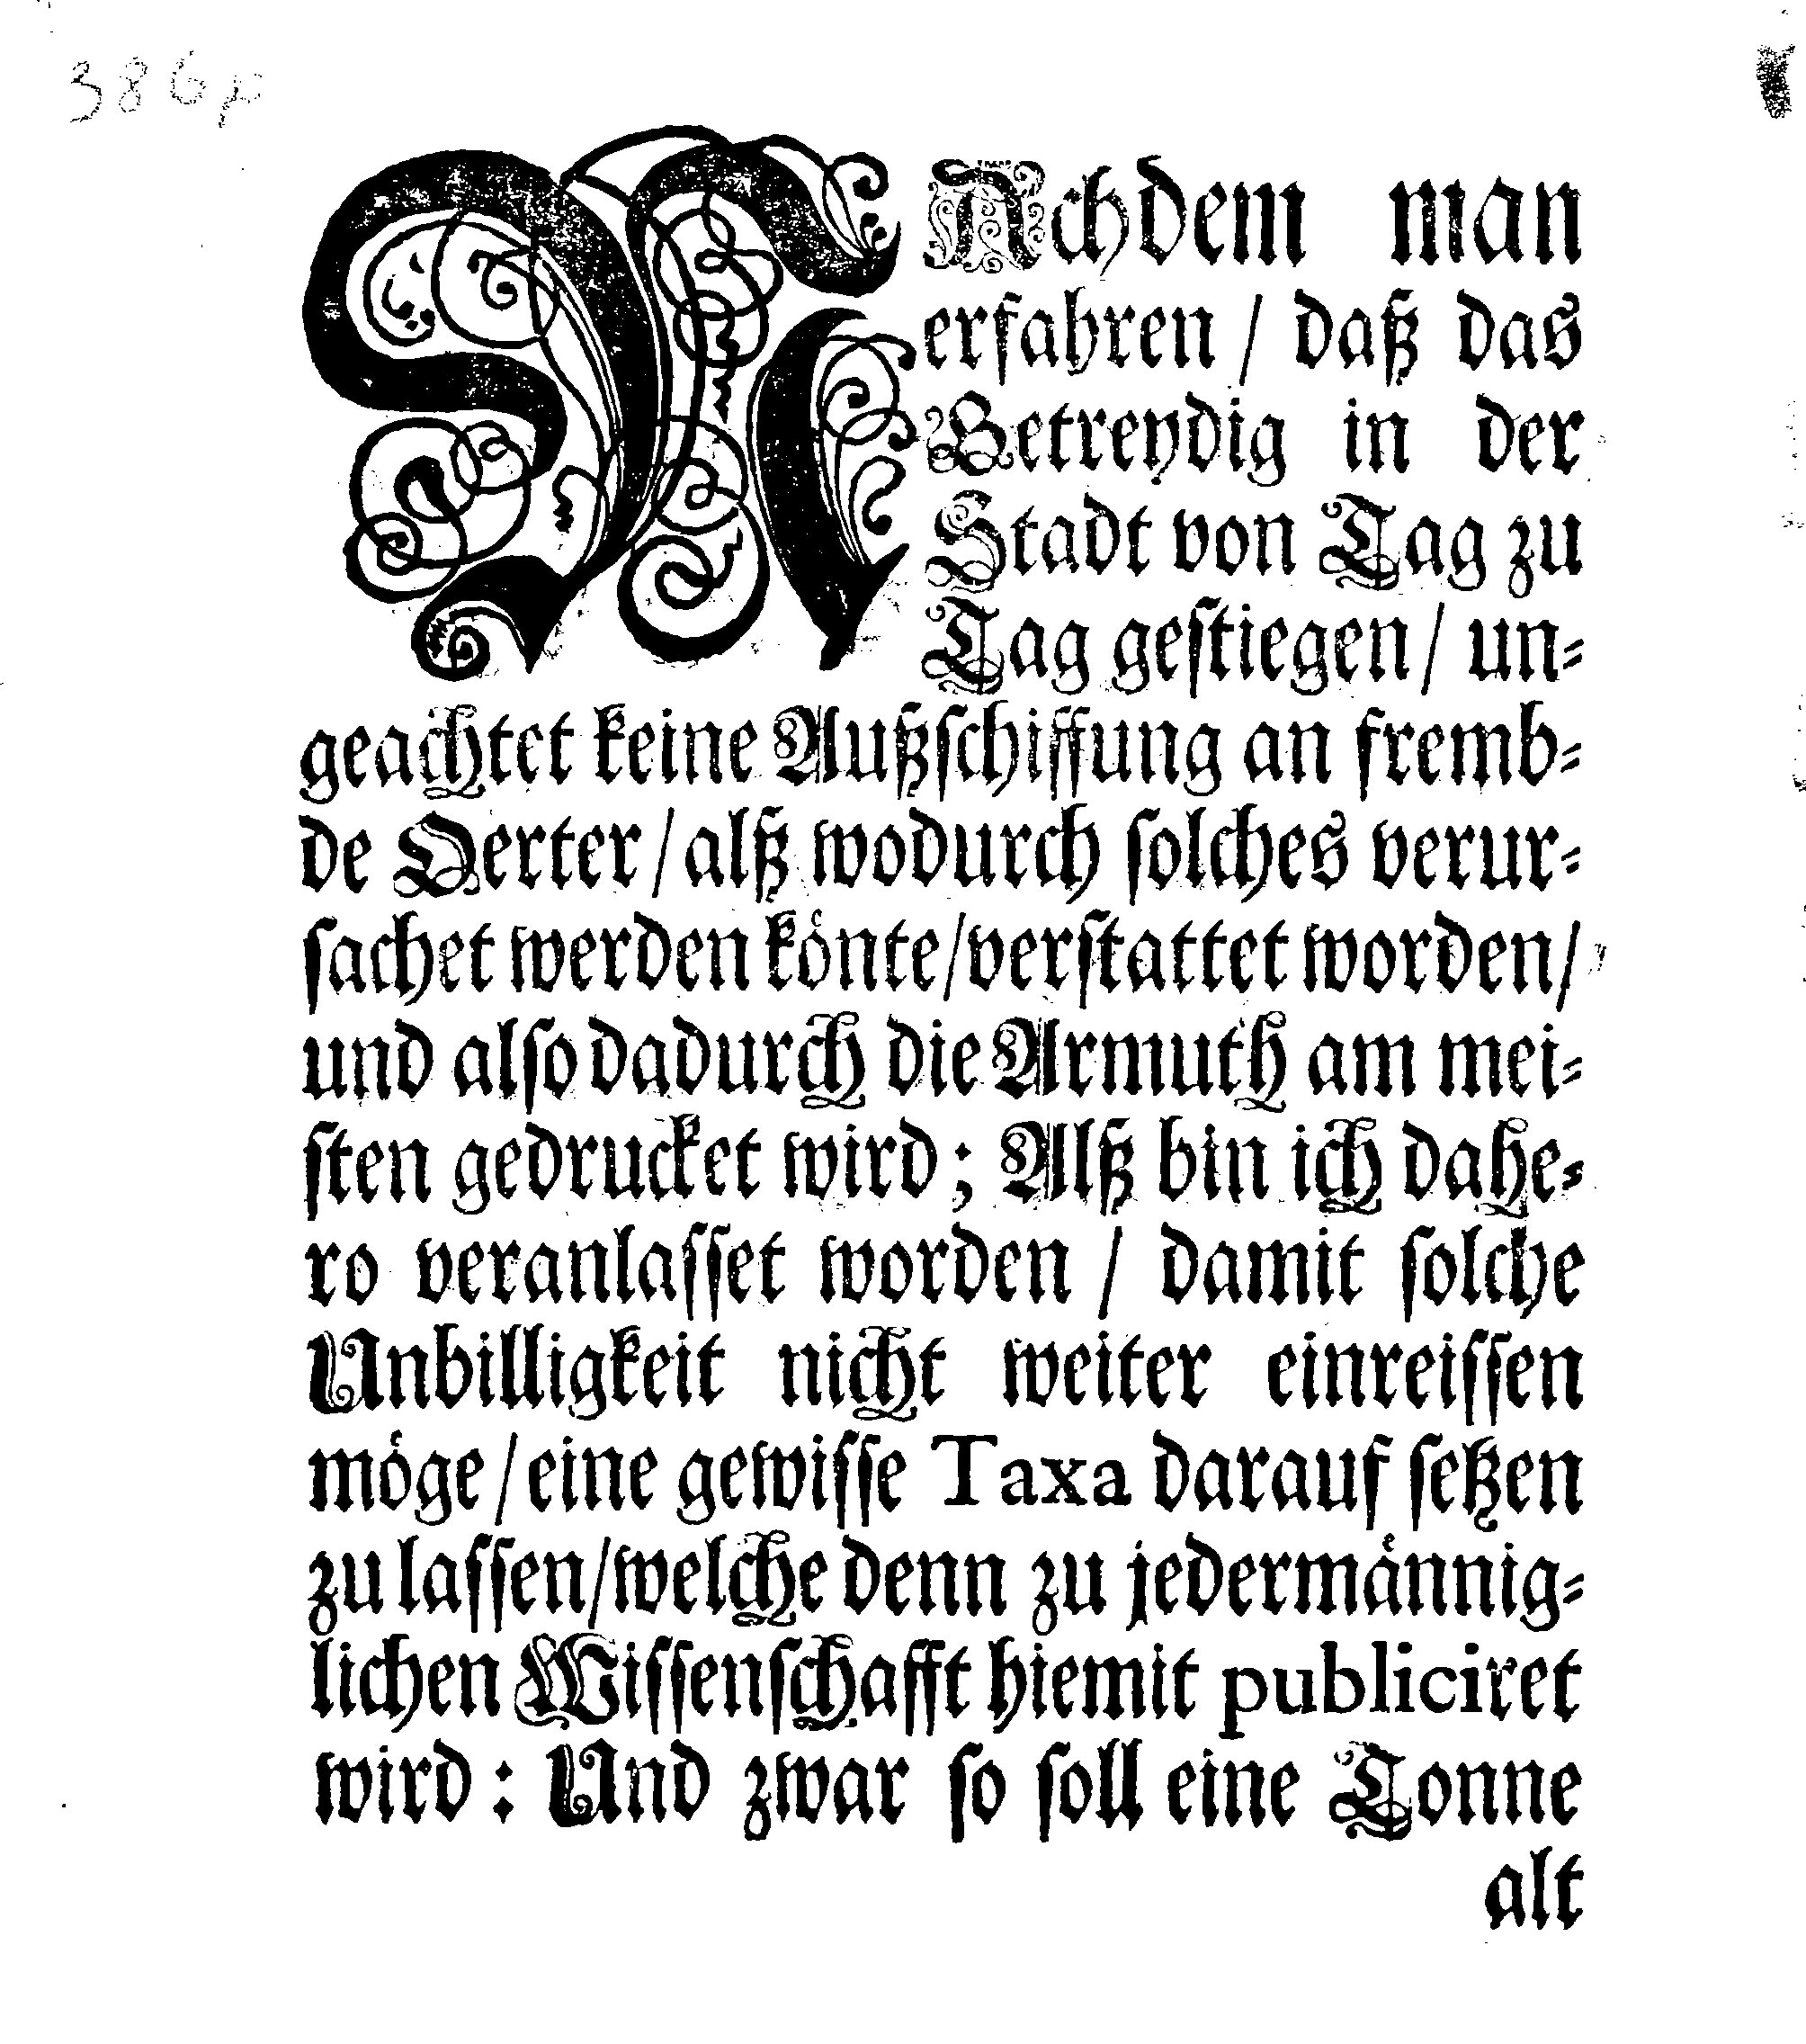 386p
NAchdem man
erfahren / daß das
Getreydig in der
Stadt von Tag zu
Tag gestiegen / un-
geachtet keine Außschiffung an fremb-
de Oerter / alß wodurch solches verur-
sachet werden könte / verstattet worden /
und also dadurch die Armuth am mei-
sten gedrucket wird ; Alß bin ich dahe-
ro veranlasset worden / damit solche
Unbilligkeit nicht weiter einreissen
möge / eine gewisse Taxa darauf setzen
zu lassen / welche denn zu jedermännig-
lichen Wissenschafft hiemit publiciret
wird : Und zwar so soll eine Tonne
alt